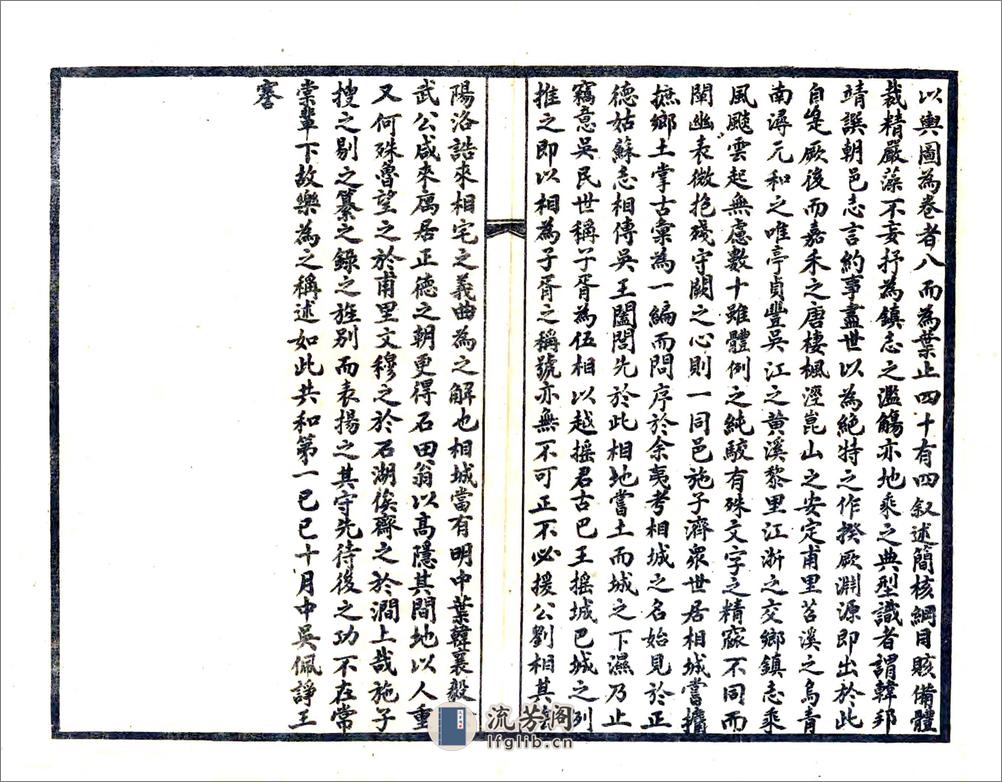 以輿圖為卷者八而為葉止四十有四叙述簡核綱目賅備體
裁精嚴藻不妄抒為鎮志之濫觴亦地乘之典型識者謂韓邦
靖譔朝邑志言約事盡世以為絕特之作揆厥淵源即出於此
自是厥後而嘉禾之唐棲楓涇崑山之安定甫里苕溪之烏青
南潯元和之唯亭貞豐吳江之黃溪黎里江浙之交鄉鎮志乘
風飈雲起無慮數十雖體例之純駁有殊文字之精窳不同而
闡幽表微抱殘守闕之心則一同邑施子濟眾世居相城嘗擔
摭鄉土掌古彙為一編而問序於余夷考相城之名始見於正
德姑蘇志相傳吳王闔閭先於此相地嘗土而城之下濕乃止
竊意吳民世稱子胥為伍相以越搖君古巴王搖城巴城之列
推之即以相為子胥之稱號亦無不可正不必援公劉相其
陽洛誥來相宅之義曲為之解也相城當有明中葉韓襄毅
武公咸來厲居正德之朝更得石田翁以高隱其間地以人重
又何殊魯望之於甫里文穆之於石湖俟齋之於澗上哉施子
搜之剔之纂之錄之旌別而表揚之其守先待後之功不在常
棠輩下故樂為之稱述如此共和第一己巳十月中吳佩諍王
謇
流芳閣
lfglib.cn